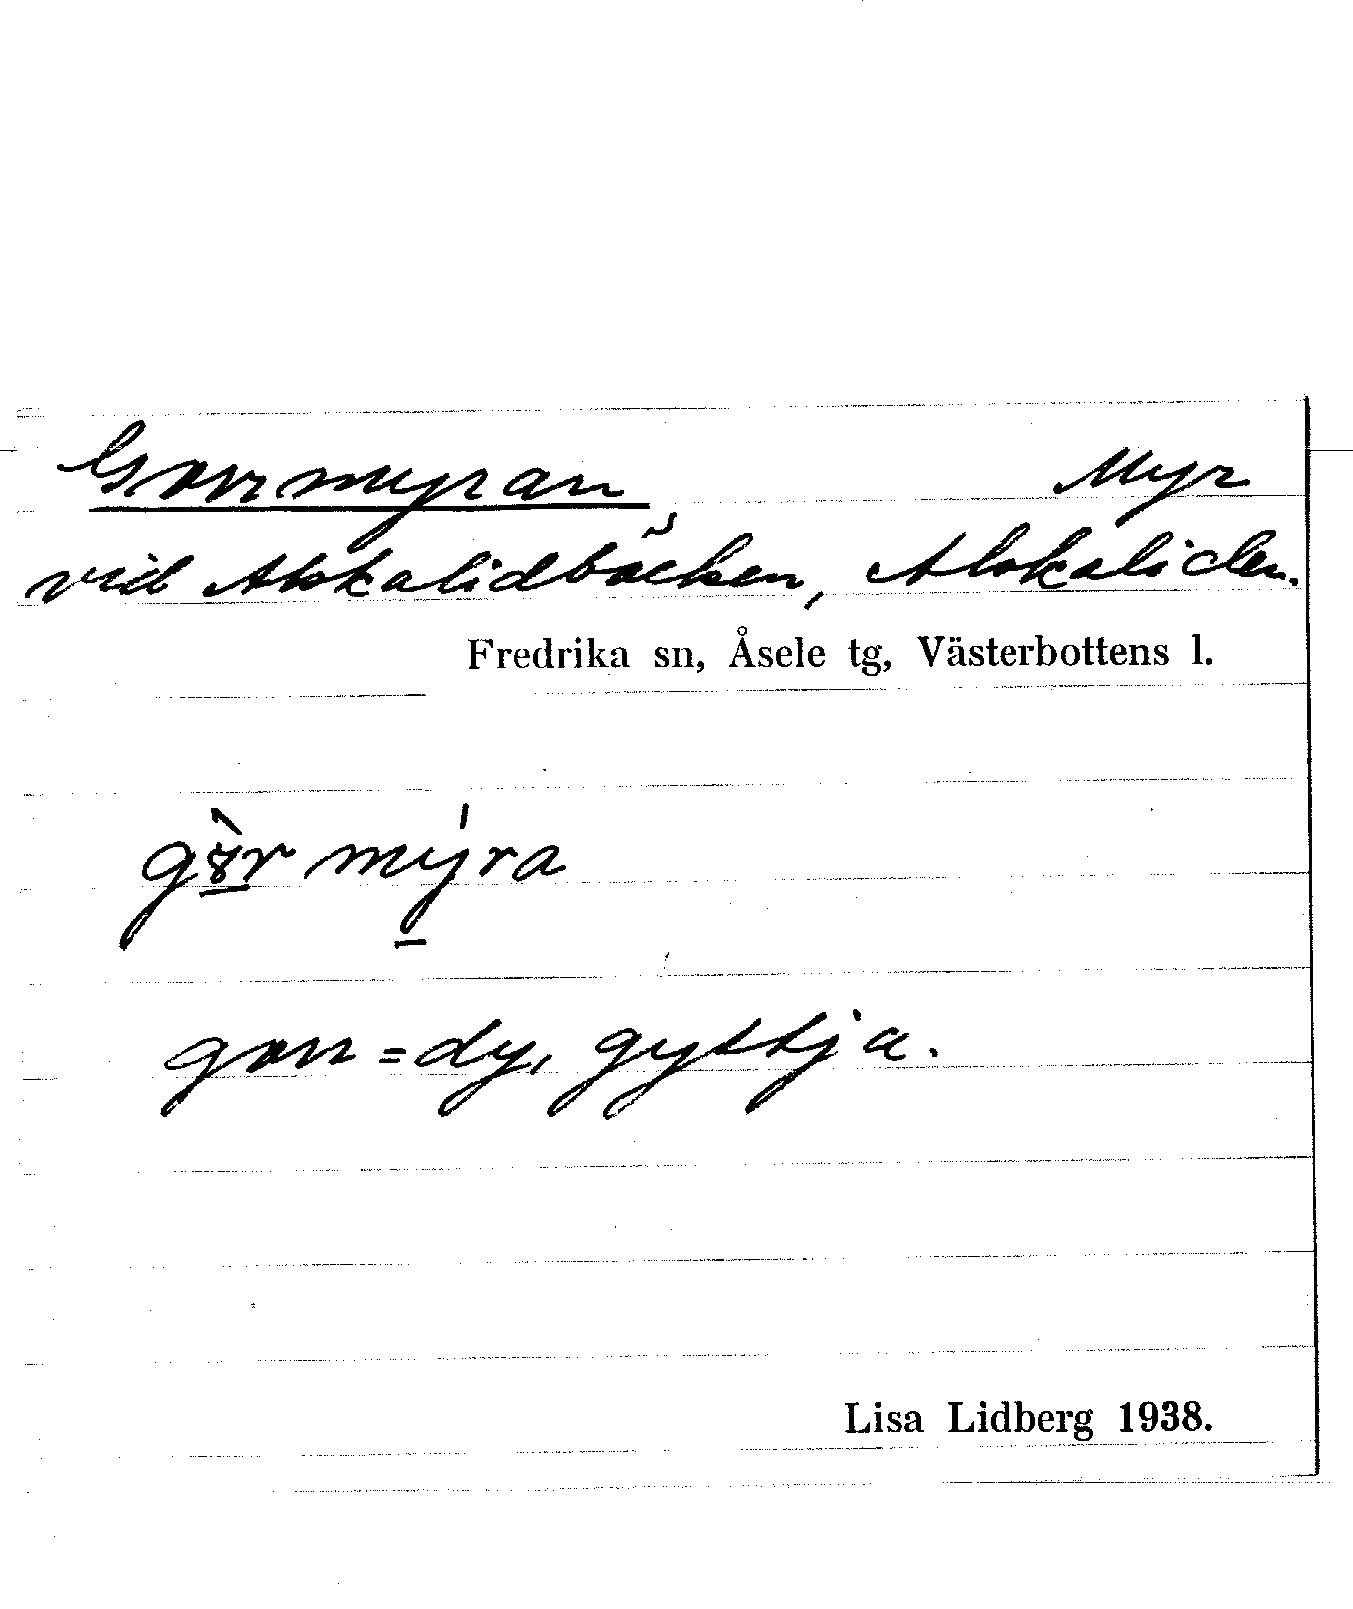 Gorrmyran Myr
vid Alskalidbäcken, Alskaliden.
Fredrika sn, Åsele tg, Västerbottens l.
gȣ̱̀r mý̱ra
gorr = dy, gyttja.
Lisa Lidberg 1938.